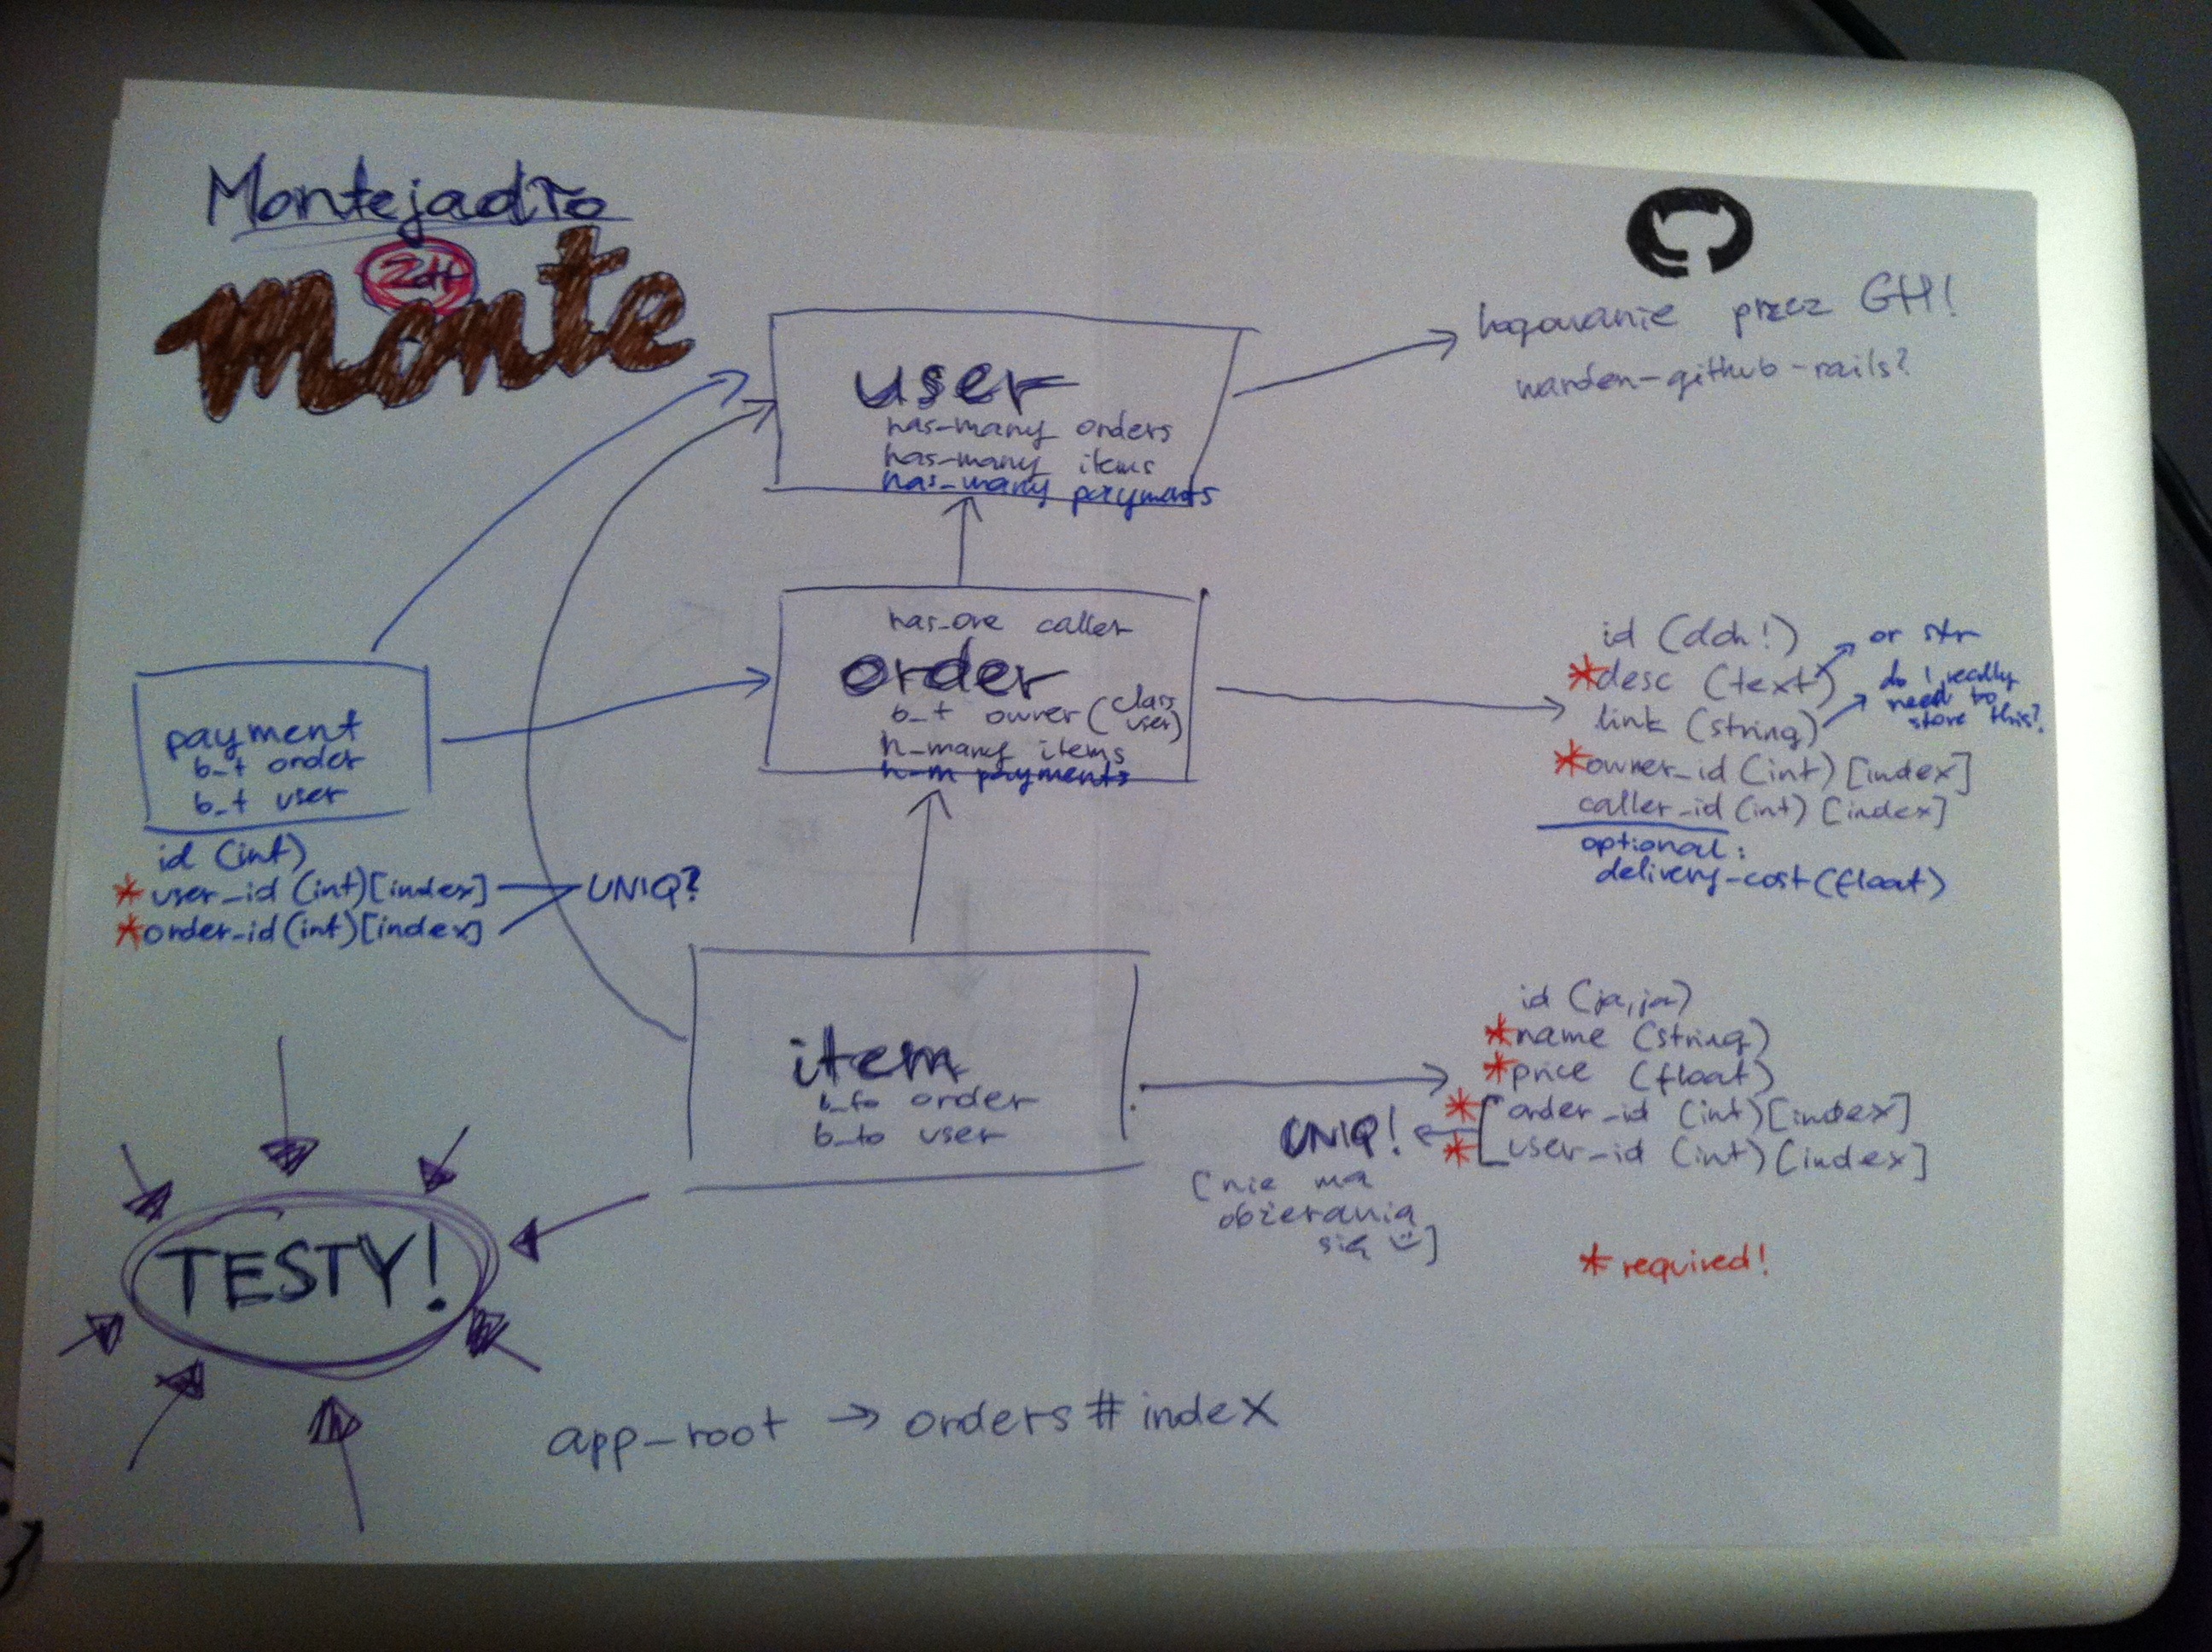 Montejadło
2dH
monte
logowanie przez GH!
warden-github-rails?
user
has_many orders
has_many items
has_many payments
has_one caller
order
b_t owner (class
user)
h_many items
h_m payments
id (doh!)
*desc (text)
or str
link (string)
do I really
need to
store this?
*owner_id (int) [index]
caller_id (int) [index]
optional:
delivery_cost (float)
payment
b_t order
b_t user
id (int)
*user_id (int) [index]
*order_id (int) [index]
UNIQ?
item
b_to order
b_to user
id (ja, ja)
*name (string)
*price (float)
*order_id (int) [index]
*user_id (int) [index]
UNIQ!
[nie ma
obżerania
się ☺]
*required!
TESTY!
app_root → orders#index